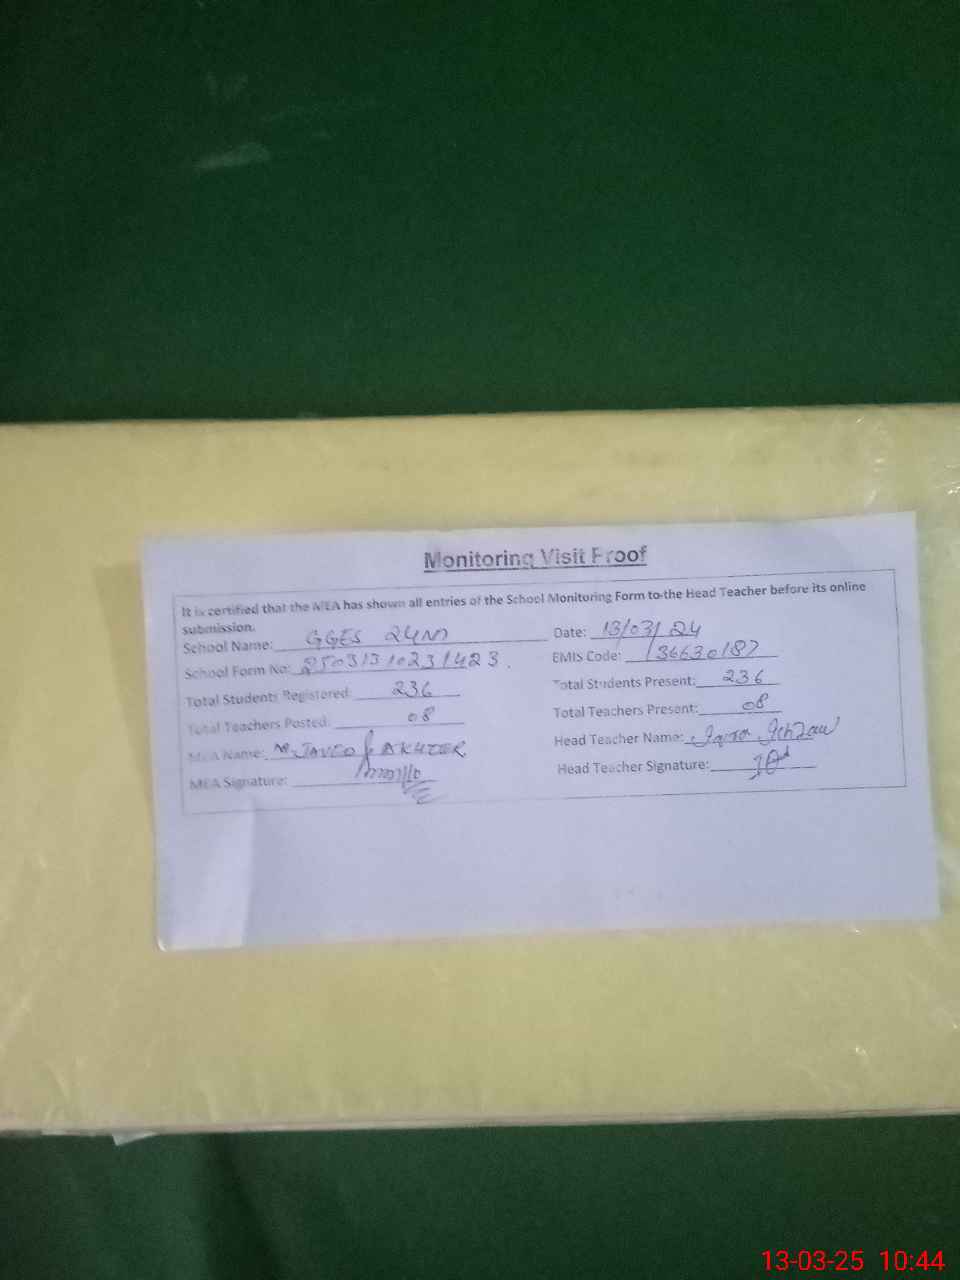 Monitoring Visit Proof
It is certified that the MEA has shown all entries of the School Monitoring Form to the Head Teacher before its online
submission.
School Name: GGES 24M Date: 13/03/24
School Form No: 25031310231423. EMIS Code: 36630187
Total Students Registered: 236 Total Students Present: 236
Total Teachers Posted: 08 Total Teachers Present: 08
MEA Name: M. JAVED AKHTER Head Teacher Name: Iqra
MEA Signature: Head Teacher Signature:
13-03-25 10:44